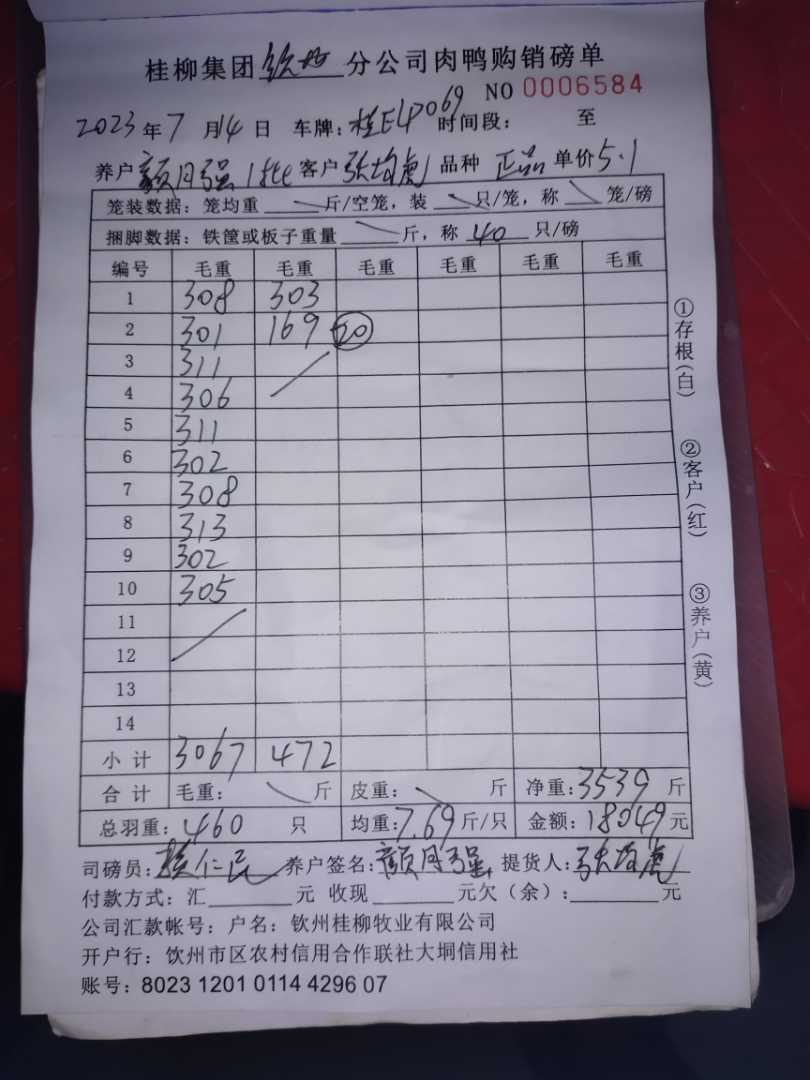 桂柳集团钦州分公司肉鸭购销磅单
NO 0006584
2023年7月14日 车牌:桂ELP069 时间段: 至
养户 颜月强 1批 客户 张均虎 品种 正品 单价 5.1
笼装数据:笼均重 斤/空笼,装 只/笼,称 笼/磅
捆脚数据:铁筐或板子重量 斤,称 40 只/磅
编号 毛重 毛重 毛重 毛重 毛重 毛重
1 308 303
2 301 169 20
3 311
4 306
5 311
6 302
7 308
8 313
9 302
10 305
11
12
13
14
小计 3067 472
合计 毛重: 斤 皮重: 斤 净重:3539 斤
总羽重:460 只 均重:7.69 斤/只 金额:18049 元
司磅员: 仁民 养户签名:颜月强 提货人:张均虎
付款方式:汇 元 收现 元欠(余): 元
公司汇款帐号:户名:钦州桂柳牧业有限公司
开户行:钦州市区农村信用合作联社大垌信用社
账号:8023 1201 0114 4296 07
①存根(白)
②客户(红)
③养户(黄)